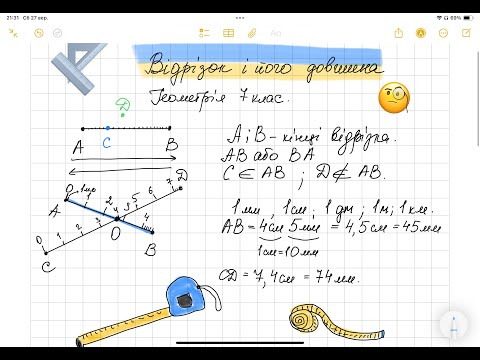 21:31 Сб 27 вер.
69%
Aa
Відрізок і його довжина
Геометрія 7 клас.
D
A C B
A і B – кінці відрізка.
AB або BA
C ∈ AB ; D ∉ AB.
1мм, 1см; 1дм; 1м; 1км.
AB = 4см 5мм = 4,5см = 45мм
1см=10мм
CD = 7,4см = 74мм.
0 1мм 1 2 3 4 5 6 7 D
A O B 4
C 0 1 2 3